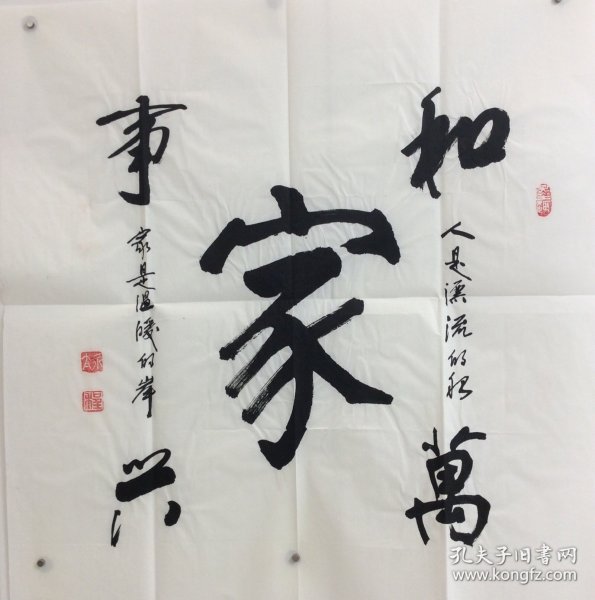 家
和
人是漂流的船
萬
事
家是温暖的岸
兴
孔夫子旧书网
www.kongfz.com